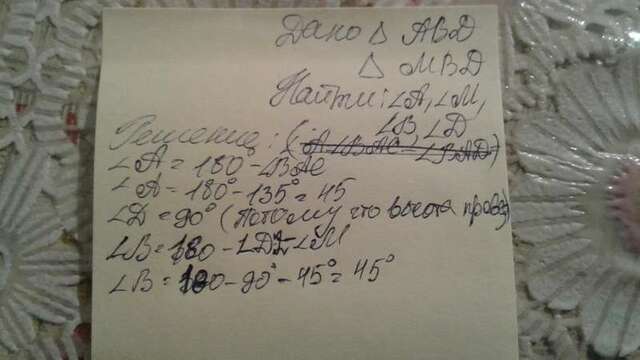 Дано Δ ABD
Δ MBD
Найти: ∠A, ∠M,
∠B, ∠D
Решение: (∠A ∠BAC ∠BAD)
∠A = 180 - ∠BAC
∠A = 180° - 135° = 45
∠D = 90° (потому что высота провед)
∠B = 180 - ∠D - ∠M
∠B = 180 - 90° - 45° = 45°